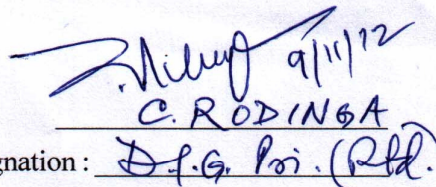 9/11/12
C. RODINGA
gnation : D.I.G. Pri. (Rtd.)